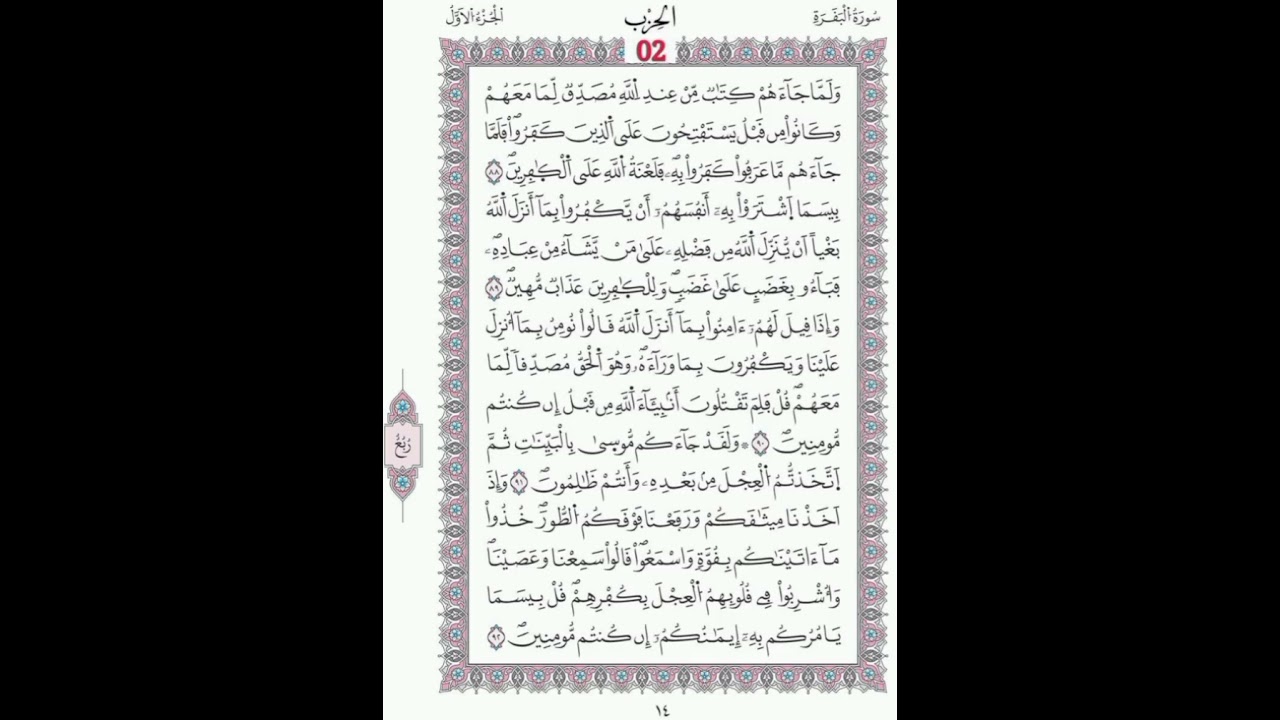 سُورَةُ الْبَقَرَةِ
الْحِزْب
الْجُزْءُ الْأَوَّلُ
02
وَلَمَّا جَآءَهُمْ كِتَٰبٌ مِّنْ عِندِ اِ۬للَّهِ مُصَدِّقٌ لِّمَا مَعَهُمْ
وَكَانُواْ مِن قَبْلُ يَسْتَفْتِحُونَ عَلَى اَ۬لذِينَ كَفَرُواْۖ فَلَمَّا
جَآءَهُم مَّا عَرَفُواْ كَفَرُواْ بِهِۦۖ فَلَعْنَةُ اُ۬للَّهِ عَلَى اَ۬لْكٰ۪فِرِينَۖ ٨٨
بِيسَمَا اَ۪شْتَرَوْاْ بِهِۦٓ أَنفُسَهُمُۥٓ أَنْ يَّكْفُرُواْ بِمَآ أَنزَلَ اَ۬للَّهُ
بَغْياً اَنْ يُّنَزِّلَ اَ۬للَّهُ مِن فَضْلِهِۦ عَلَىٰ مَنْ يَّشَآءُ مِنْ عِبَادِهِۦۖ
فَبَآءُو بِغَضَبٍ عَلَىٰ غَضَبٍۖ وَلِلْكٰ۪فِرِينَ عَذَابٌ مُّهِينٌۖ ٨٩
وَإِذَا قِيلَ لَهُمُۥٓ ءَامِنُواْ بِمَآ أَنزَلَ اَ۬للَّهُ قَالُواْ نُومِنُ بِمَآ أُنزِلَ
عَلَيْنَا وَيَكْفُرُونَ بِمَا وَرَآءَهُۥ وَهُوَ اَ۬لْحَقُّ مُصَدِّقاً لِّمَا
مَعَهُمْۖ قُلْ فَلِمَ تَقْتُلُونَ أَنۢبِئَآءَ اَ۬للَّهِ مِن قَبْلُ إِن كُنتُم
مُّومِنِينَۖ ٩٠ ۞ وَلَقَدْ جَآءَكُم مُّوس۪ىٰ بِالْبَيِّنَٰتِ ثُمَّ
اَ۪تَّخَذتُّمُ اُ۬لْعِجْلَ مِنۢ بَعْدِهِۦ وَأَنتُمْ ظَٰلِمُونَۖ ٩١ وَإِذَ
اَخَذْنَا مِيثَٰقَكُمْ وَرَفَعْنَا فَوْقَكُمُ اُ۬لطُّورَۖ خُذُواْ
مَآ ءَاتَيْنَٰكُم بِقُوَّةٍ وَاسْمَعُواْۖ قَالُواْ سَمِعْنَا وَعَصَيْنَاۖ
وَأُشْرِبُواْ فِے قُلُوبِهِمُ اُ۬لْعِجْلَ بِكُفْرِهِمْۖ قُلْ بِيسَمَا
يَامُرُكُم بِهِۦٓ إِيمَٰنُكُمُۥٓ إِن كُنتُم مُّومِنِينَۖ ٩٢
رُبُعُ
١٤